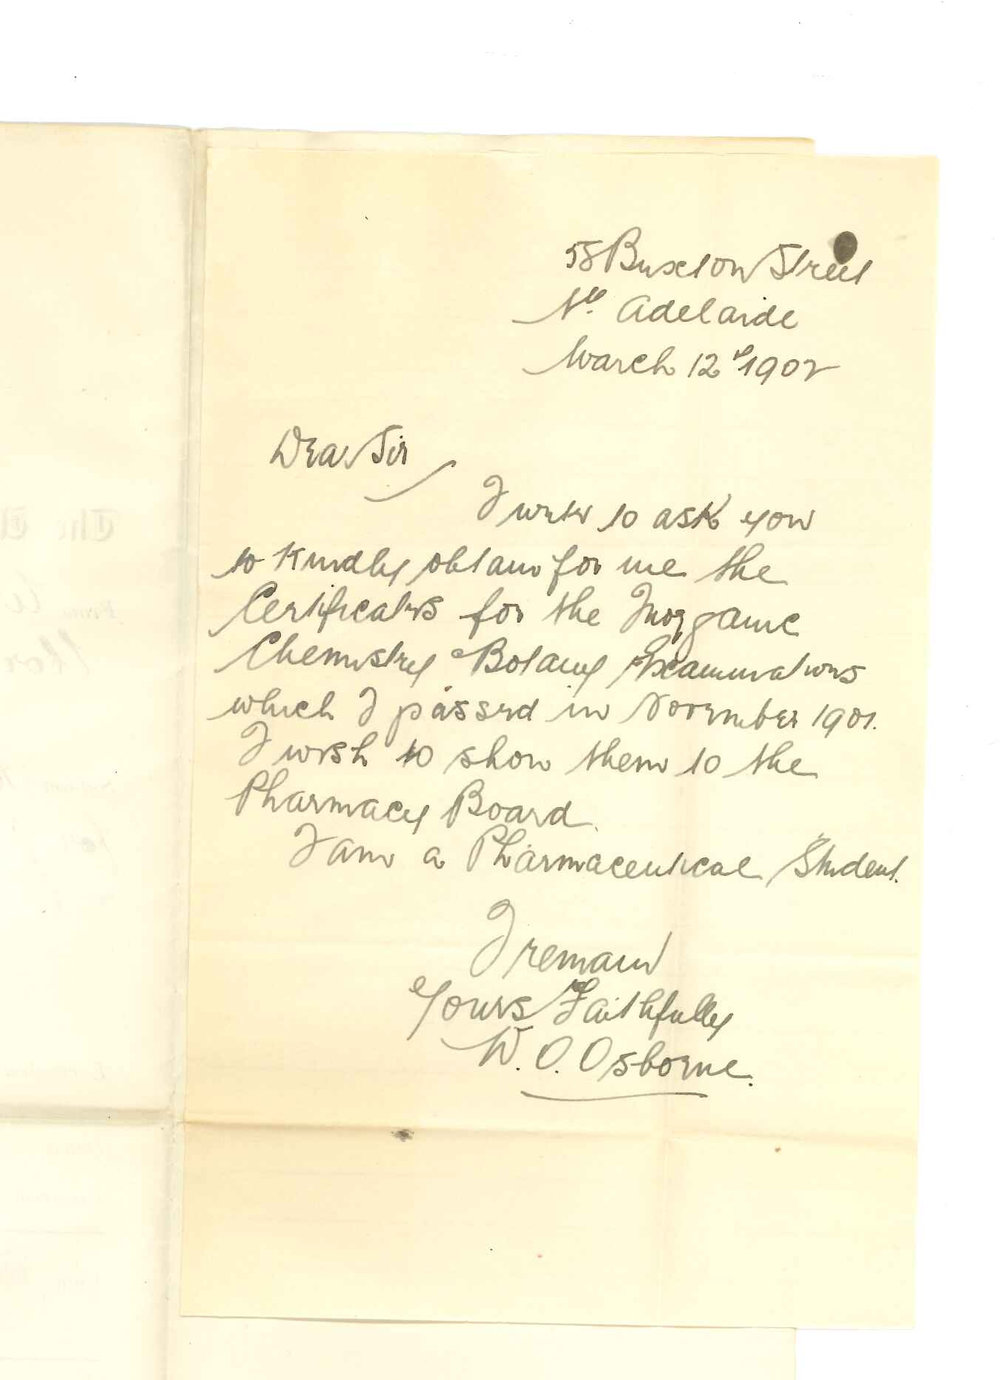 58 Buxton Street
Nth. Adelaide
March 12th 1902
Dear Sir
I write to ask you
to kindly obtain for me the
Certificates for the Inorganic
Chemistry & Botany Examinations
which I passed in November 1901.
I wish to show them to the
Pharmacy Board.
I am a Pharmaceutical Student.
I remain
Yours Faithfully
W. O. Osborne.